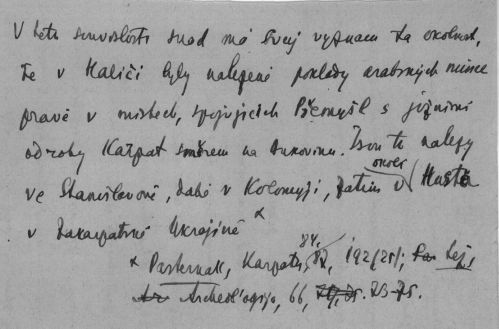 V této souvislosti snad má svůj význam ta okolnost,
že v Haliči byly nalezené poklady arabských mincí
právě v místech, spojujících Přemyšl s jižními
odrohy Karpat směrem na Bukovinu. Jsou to nálezy
ve Stanislavově, dále v Kolomyji, zatím v okolí Husta
v Zakarpatské Ukrajině x
x Pasternak, Karpaty, 84, 192(25);
Archeol'ogija, 66, 73-75.